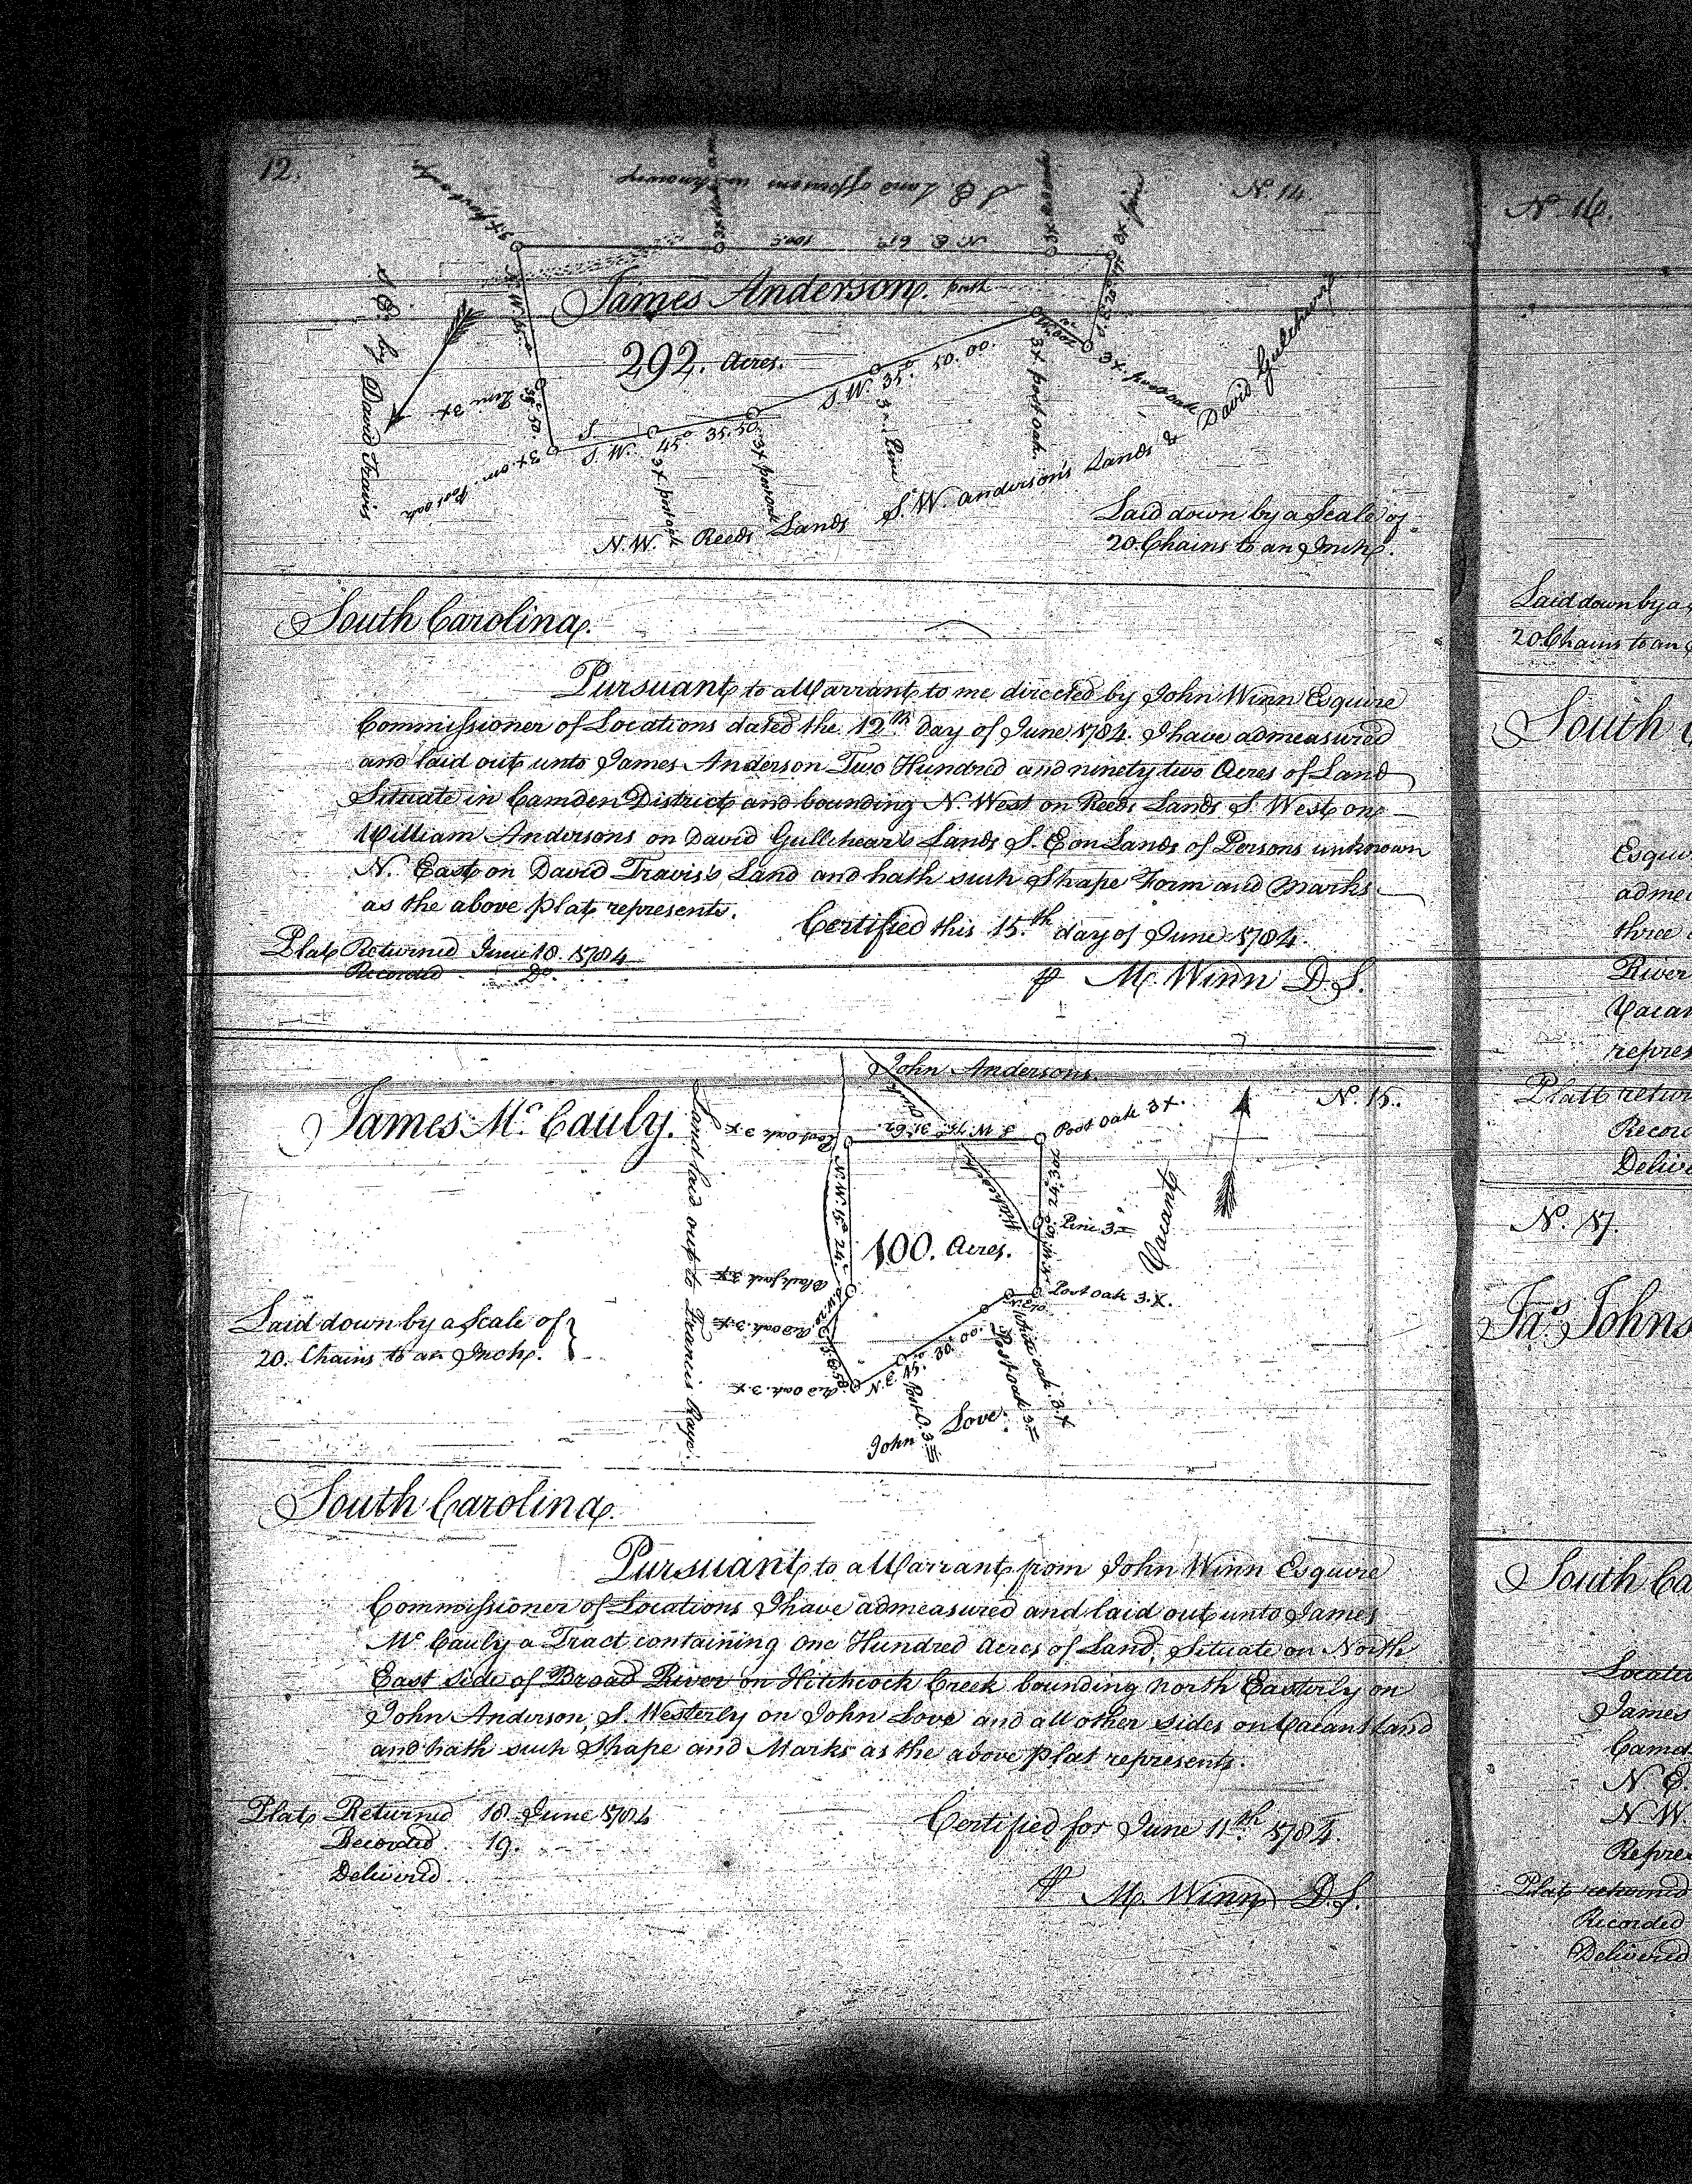 12.
N. 14.
S E Land of Persons unknown
3x post oak
3x pine
N. E 61°
James Anderson.
path
292. Acres.
S. W. 35° 50.00.
S. W. 45° 35.50
3x post oak.
3x post oak
3x post oak
Pine
Post oak
N. E. by David Travis
N. W. Reeds Lands S. W. anderson's Lands & David Gullchurs
Laid down by a Scale of
20. Chains to an Inch.
South Carolina.
Pursuant to a Warrant to me directed by John Winn Esquire
Commissioner of Locations dated the 12th day of June 1784. I have admeasured
and laid out unto James Anderson Two Hundred and ninety two Acres of Land
Situate in Camden District and bounding N. West on Reeds Lands S. West on
William Andersons on David Gullchear's Lands S. E on Lands of Persons unknown
N. East on David Travis's Land and hath such Shape Form and marks
as the above plat represents.
Certified this 15.th day of June 1784.
Plat Returned June 18. 1784
Recorded Do.
M. Winn D. S.
John Andersons.
N. 15.
James Mc. Cauly.
Post oak 3x.
Post oak 3x
S. W. 75° 31.62.
N. W. 15° 24.
Land laid out to Francis Raye.
Pine 3
Vacant
100. Acres.
Black jack 3x
Post oak 3.X.
Red oak. 3.x
Red oak. 3.x
N. E. 45. 30.00.
White oak. 3.X
Post oak 3
Post O. 3
John Love.
Laid down by a Scale of
20. Chains to an Inch.
South Carolina.
Pursuant to a Warrant from John Winn Esquire
Commissioner of Locations I have admeasured and laid out unto James
Mc. Cauly a Tract containing One Hundred Acres of Land, Situate on North
East side of Broad River on Hitchcock Creek bounding North Easterly on
John Anderson, S. Westerly on John Love and all other sides on Vacant Land
and hath such Shape and Marks as the above plat represents.
Plat Returned 18 June 1784
Recorded 19.
Delivered
Certified for June 11th 1784.
M. Winn D. S.
N. 16.
Laid down by a
20 Chains to an
South
Esqui
adme
three
River
Vacan
repres
Platt retur
Recor
Delive
N. 17.
Jas. Johns
South Ca
Locatio
James
Camd
N. E.
N W.
Repre
Plat returned
Recorded
Delivered